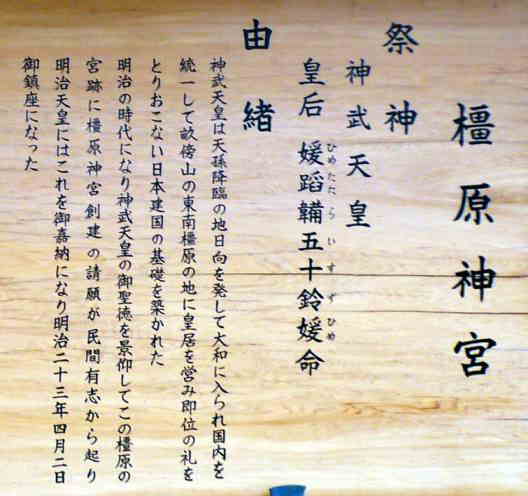 橿原神宮
祭神
神武天皇
皇后 媛蹈韛五十鈴媛命
ひめたたらいすずひめ
由緒
神武天皇は天孫降臨の地日向を発して大和に入られ国内を
統一して畝傍山の東南橿原の地に皇居を営み即位の礼を
とりおこない日本建国の基礎を築かれた
明治の時代になり神武天皇の御聖徳を景仰してこの橿原の
宮跡に橿原神宮創建の請願が民間有志から起り
明治天皇にはこれを御嘉納になり明治二十三年四月二日
御鎮座になった